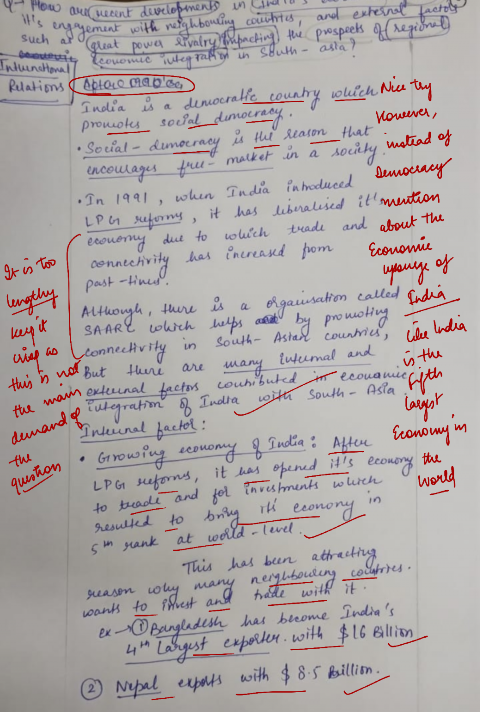 Q- How are recent developments in India's
it's engagement with neighbouring countries, and external factors
such as great power rivalry impacting the prospects of regional
economic integration in South-asia?
International
Relations
After 1990's
India is a democratic country which
promotes social democracy.
• Social-democracy is the reason that
encourages free-market in a society.
• In 1991, when India introduced
LPG reforms, it has liberalised it's
economy due to which trade and
connectivity has increased from
past-times.
Although, there is a organisation called
SAARC which helps by promoting
connectivity in South-Asian countries,
But there are many Internal and
external factors contributed in economic
integration of India with South-Asia
Internal factor:
• Growing economy of India: After
LPG reforms, it has opened it's economy
to trade and for investments which
resulted to bring its economy in
5th rank at world-level.
This has been attracting
reason why many neighbouring countries.
wants to invest and trade with it.
ex → ① Bangladesh has become India's
4th largest exporter with $16 Billion
② Nepal exports with $8.5 Billion.
It is too
lengthy
keep it
crisp as
this is not
the main
demand of
the
question
Nice try
However,
instead of
Democracy
mention
about the
Economic
upsurge of
India
like India
is the
fifth
largest
Economy in
the
World